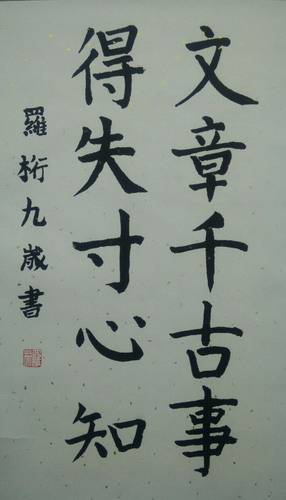 文章千古事
得失寸心知
羅桁九歲書